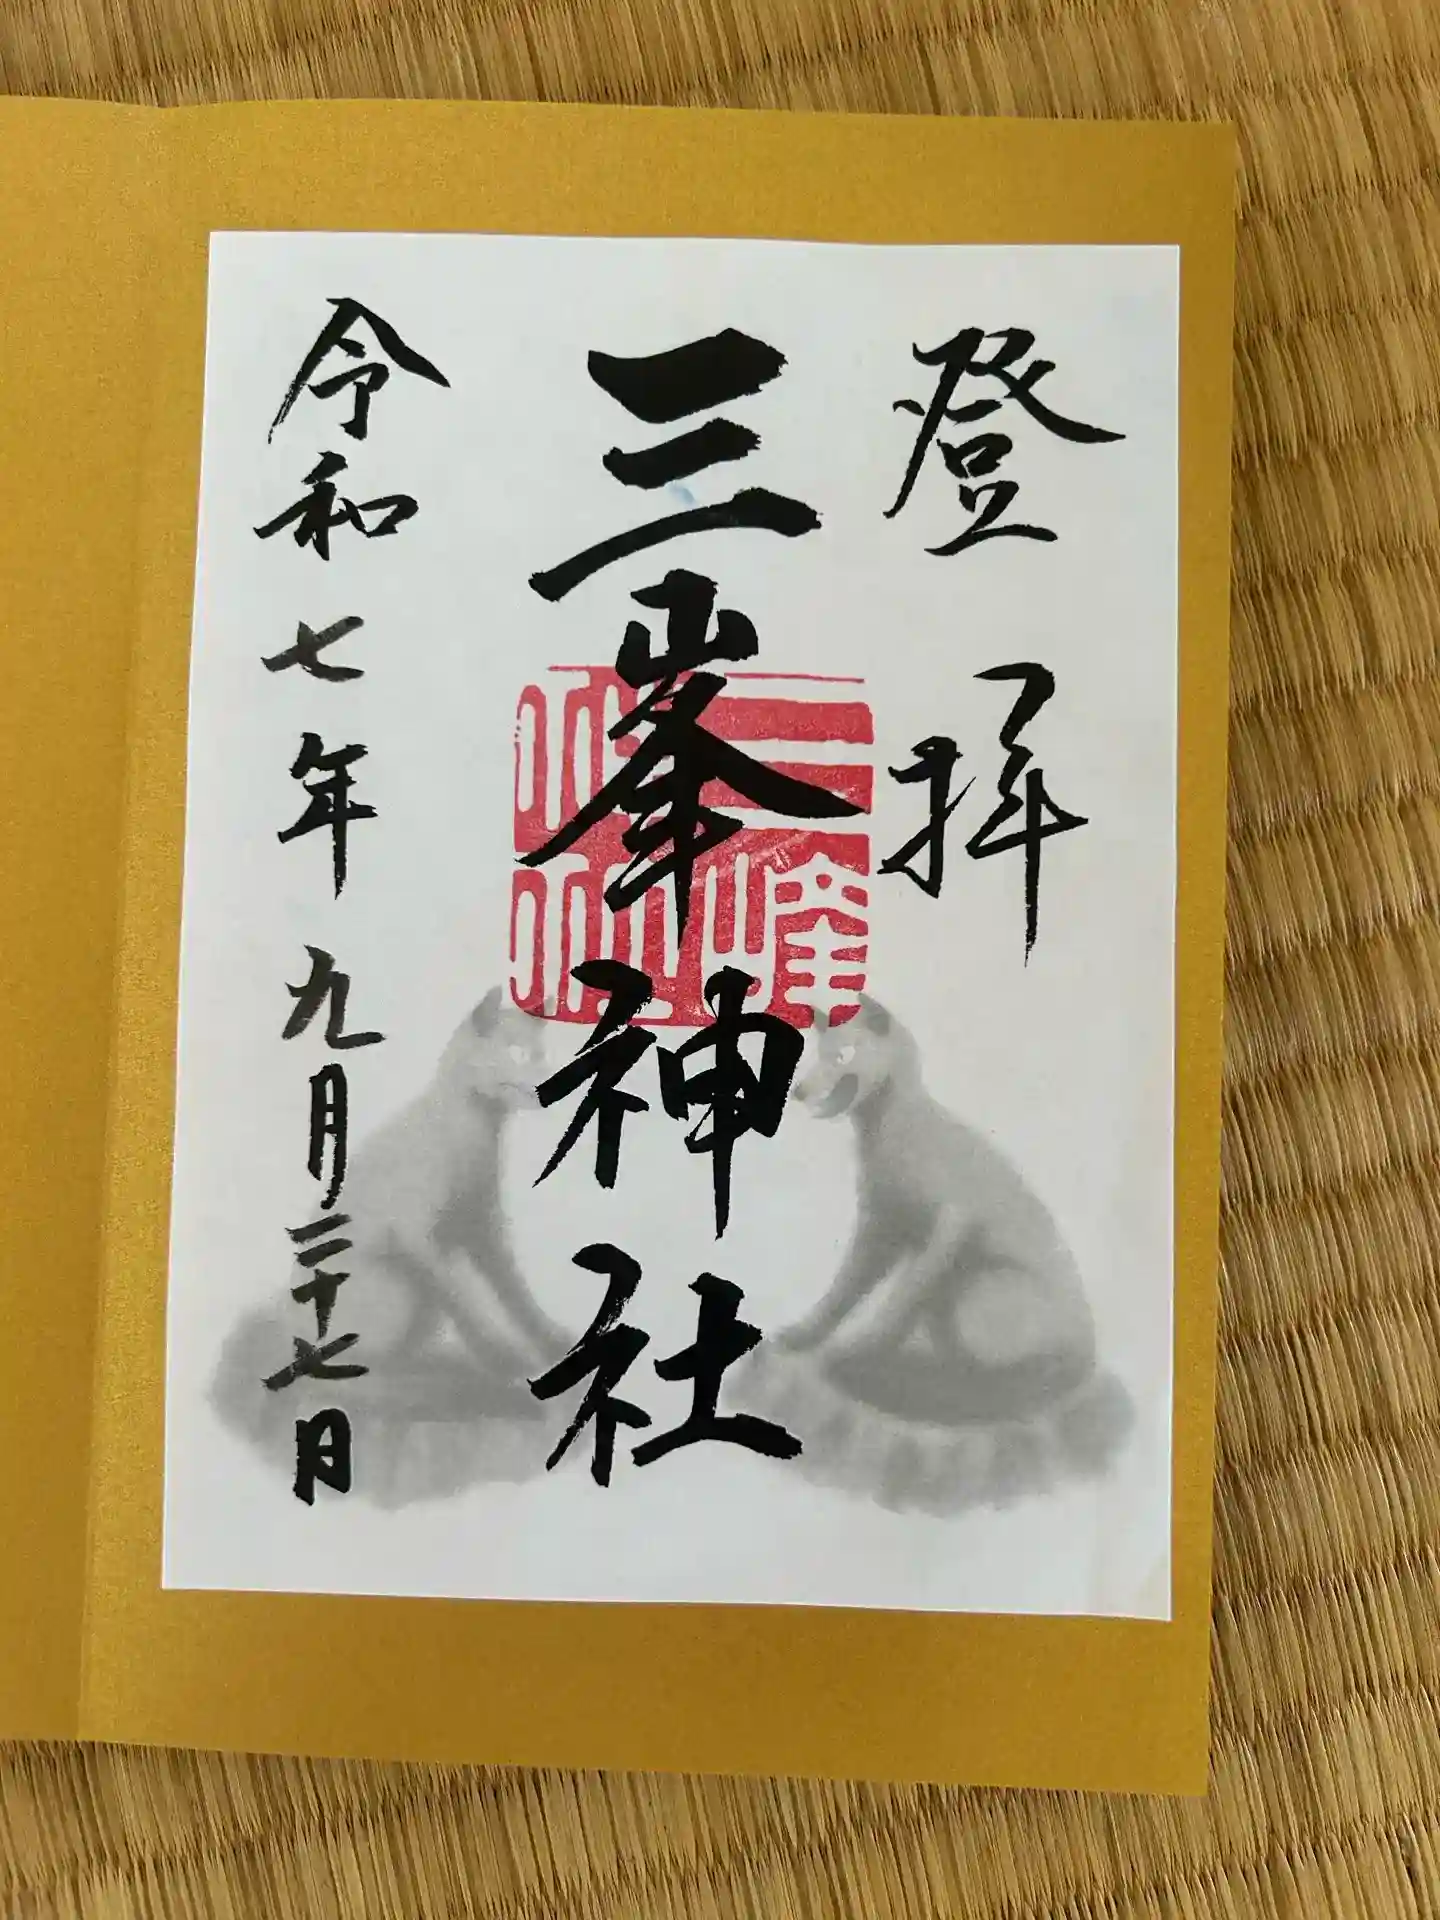 登拝
三峯神社
三峰神社
令和七年九月二十七日